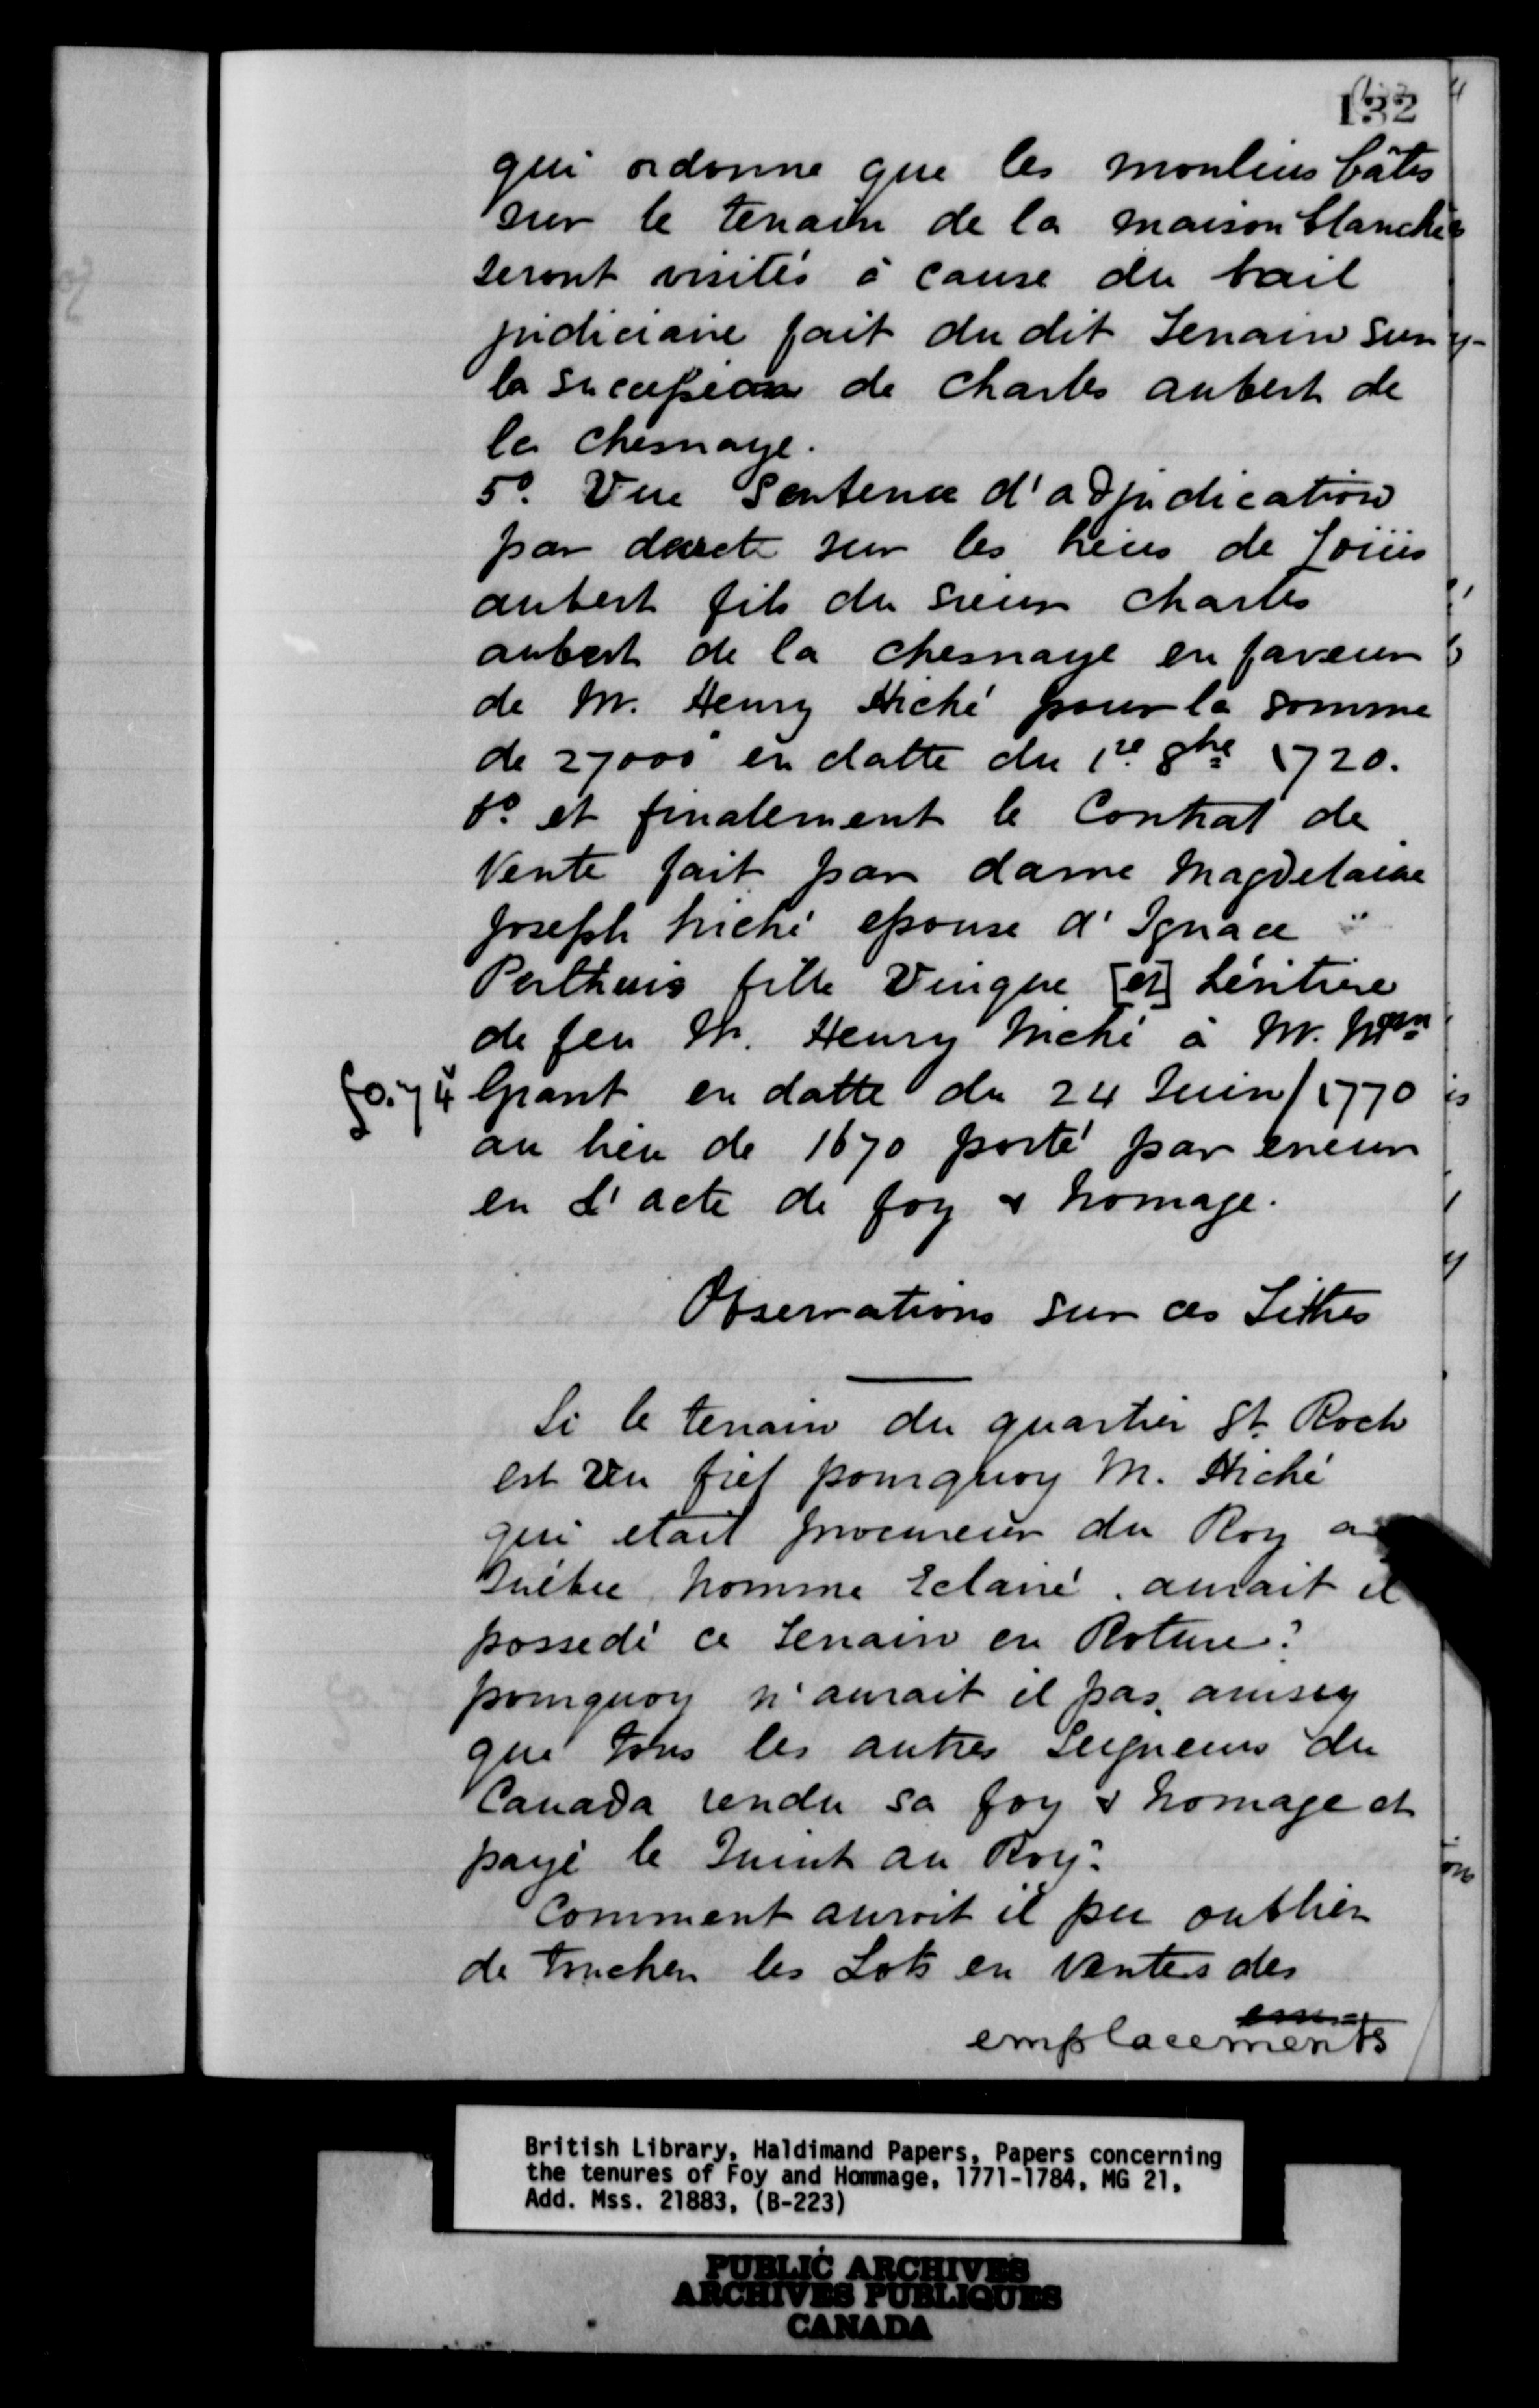 132
qui ordonne que les moulins bâtis
sur le terrain de la maison blanche
seront visités à cause du bail
judiciaire fait du dit Terrain sur
la succession de Charles aubert de
la Chesnaye.
5º. Une Sentence d'adjudication
par decret sur les biens de Loüis
aubert fils du sieur Charles
aubert de la Chesnaye en faveur
de M. Henry Hiché pour la somme
de 27000 en datte du 1re 8bre 1720.
6º et finalement le Contrat de
Vente fait par dame Magdelaine
Joseph hiché epouse d'Ignace
Perthuis fille Unique [et] héritiere
de feu M. Henry hiché à M. Wm
fo. 74 Grant en datte du 24 Juin / 1770
au lieu de 1670 porté par erreur
en L'acte de foy & homage.
Observations sur ces Tittres
Si le terrain du quartier St. Roch
est Un fief pourquoy M. Hiché
qui etait procureur du Roy a
Québec, homme Eclairé, aurait il
possedé ce Terrain en Roture?
pourquoy n'aurait il pas, ainsy
que tous les autres Seigneurs du
Canada rendu sa foy & homage et
payé le Quint au Roy?
Comment auroit il pu oublier
de toucher les Lots en Ventes des
emplacements
British Library, Haldimand Papers, Papers concerning
the tenures of Foy and Hommage, 1771-1784, MG 21,
Add. Mss. 21883, (B-223)
PUBLIC ARCHIVES
ARCHIVES PUBLIQUES
CANADA